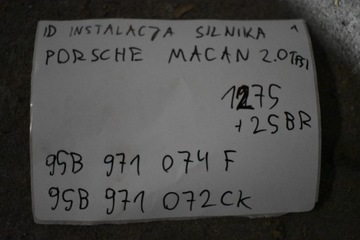 ID INSTALACJA SILNIKA 1
PORSCHE MACAN 2.0TFSI
1275
+25BR
95B 971 074 F
95B 971 072CK